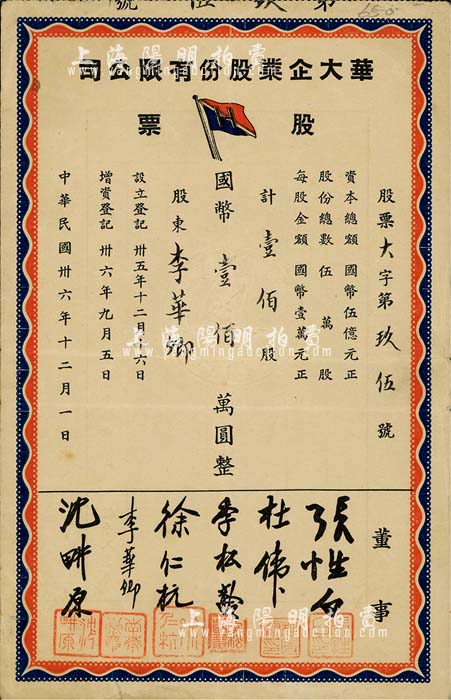 第 玖 伍 號
65-5
華大企業股份有限公司
股票
股票大字第玖伍號
資本總額 國幣伍億元正
股份總數 伍萬股
每股金額 國幣壹萬元正
計壹佰股
國幣壹佰萬圓整
股東 李華卿
設立登記 卅五年十二月十六日
增資登記 卅六年九月五日
中華民國卅六年十二月一日
董事
杜偉
李松齡
徐仁杭
李華卿
沈畊原
上海陽明拍賣
上海陽明拍賣
www.yangmingauction.com
上海陽明拍賣
www.yangmingauction.com